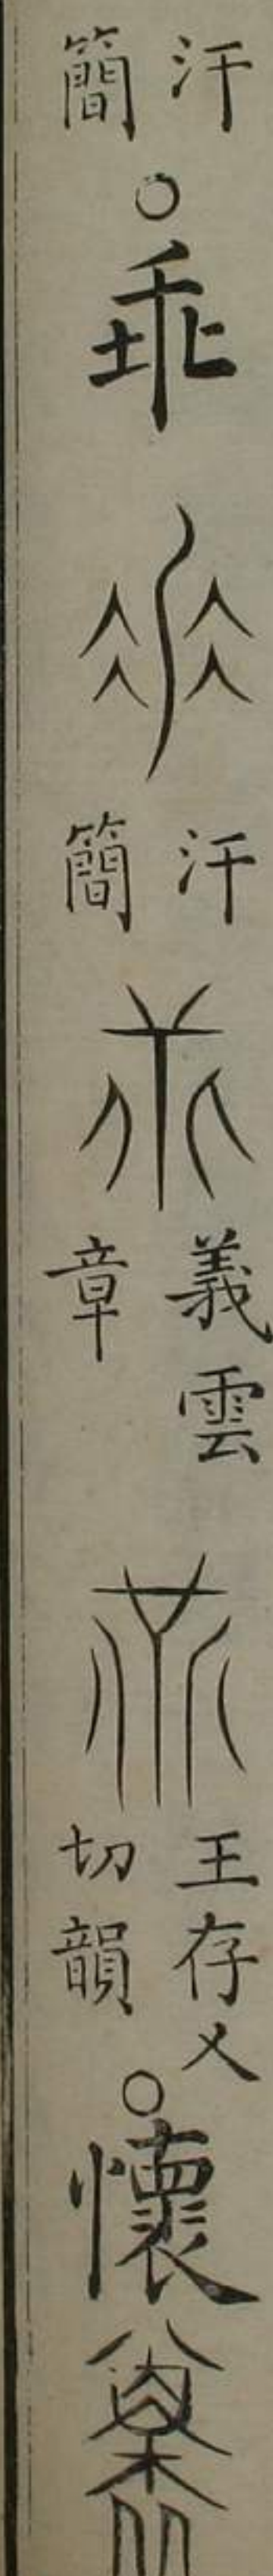 汗簡○乖 汗簡 義雲章 王存乂切韻○懷